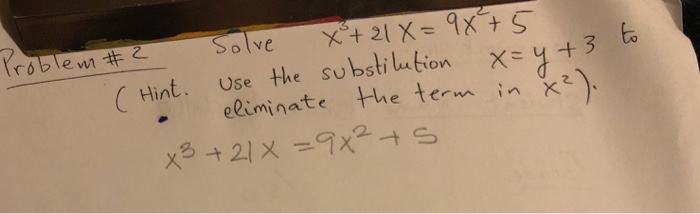 Problem # 2 Solve x³ + 21 x = 9x² + 5
( Hint. Use the substilution x = y + 3 to
eliminate the term in x²).
x³ + 21x = 9x² + 5